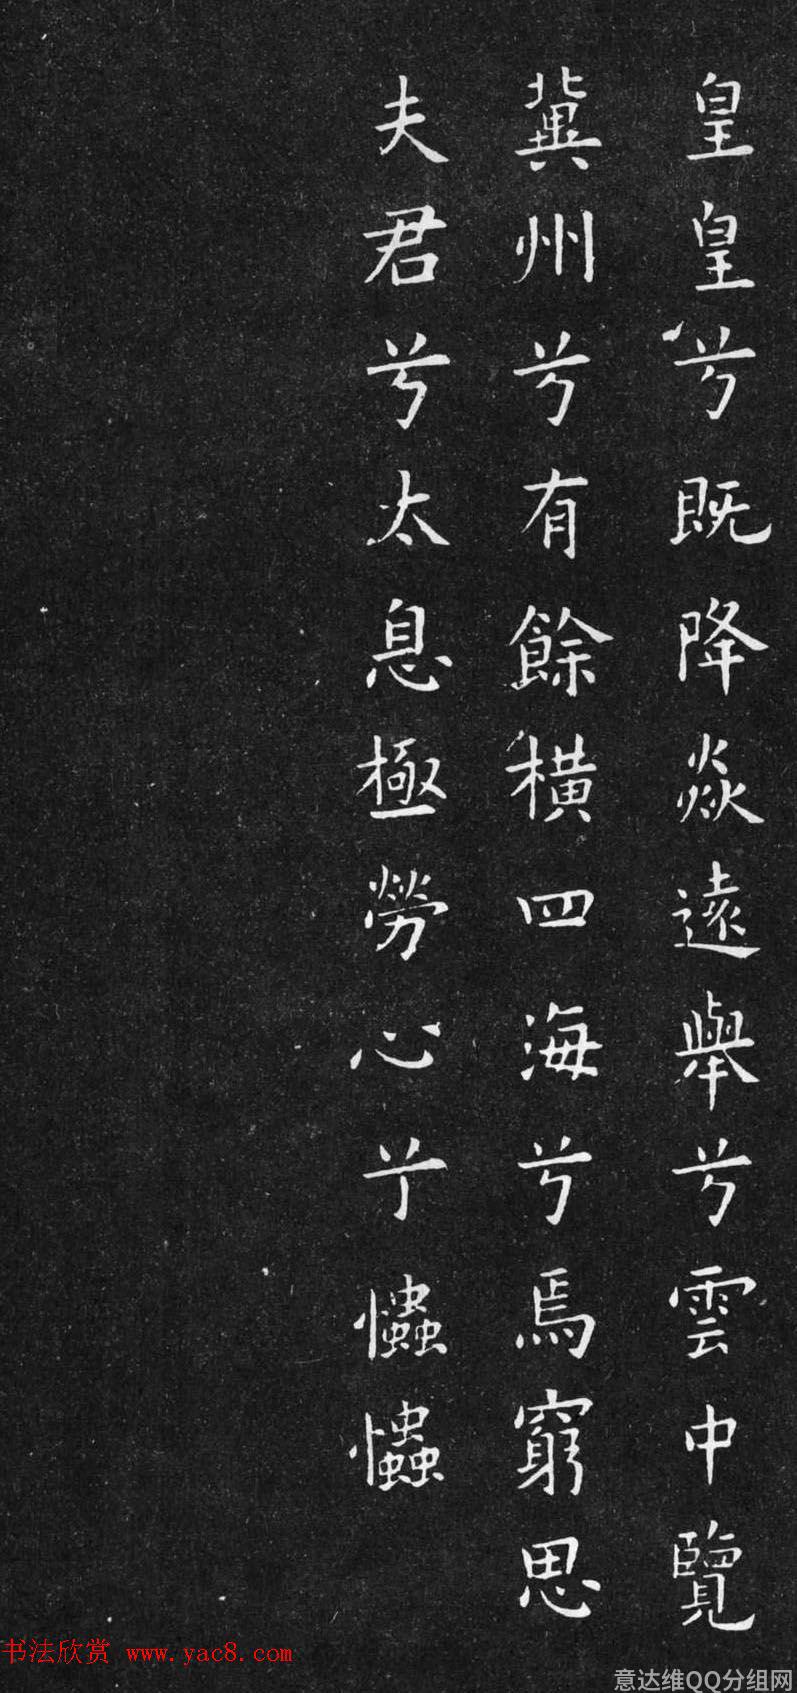 皇皇兮既降焱遠舉兮雲中覽
冀州兮有餘橫四海兮焉窮思
夫君兮太息極勞心兮忡忡
书法欣赏 www.yac8.com
意达维QQ分组网